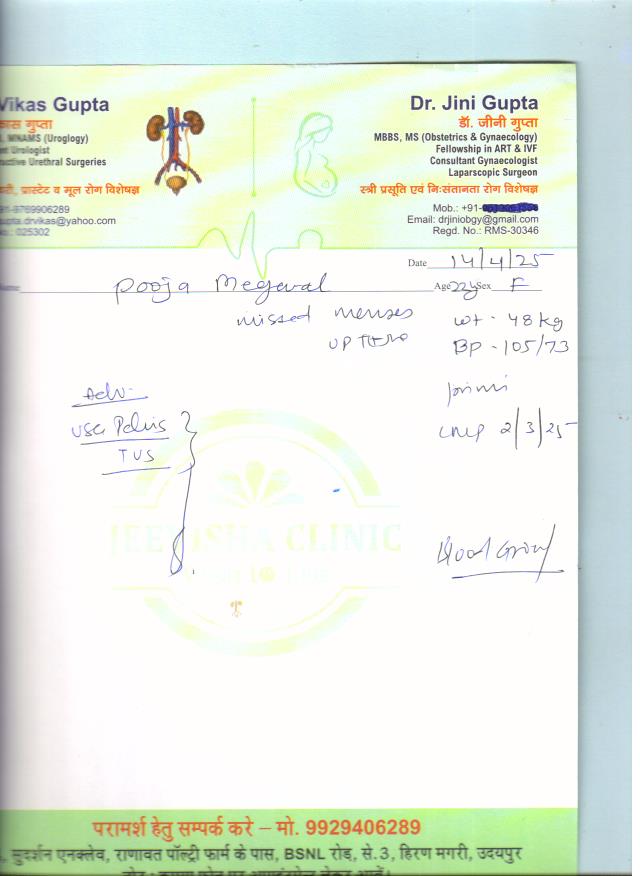 Vikas Gupta
कास गुप्ता
MNAMS (Uroglogy)
nt Urologist
ructive Urethral Surgeries
री, प्रास्टेट व मूल रोग विशेषज्ञ
91-9769906289
gupta.drvikas@yahoo.com
No.: 025302
Dr. Jini Gupta
डॉ. जीनी गुप्ता
MBBS, MS (Obstetrics & Gynaecology)
Fellowship in ART & IVF
Consultant Gynaecologist
Laparscopic Surgeon
स्त्री प्रसूति एवं निःसंतानता रोग विशेषज्ञ
Mob.: +91-
Email: drjiniobgy@gmail.com
Regd. No.: RMS-30346
Date 14/4/25
Name Pooja Megwal Age 22y Sex F
missed menses wt - 48 kg
UPT BP - 105/73
Adv - primi
USG Pelvis LMP 2/3/25
TVS
JEEVISHA CLINIC
Blood Group
परामर्श हेतु सम्पर्क करे – मो. 9929406289
, सुदर्शन एनक्लेव, राणावत पॉल्ट्री फार्म के पास, BSNL रोड़, से.3, हिरण मगरी, उदयपुर